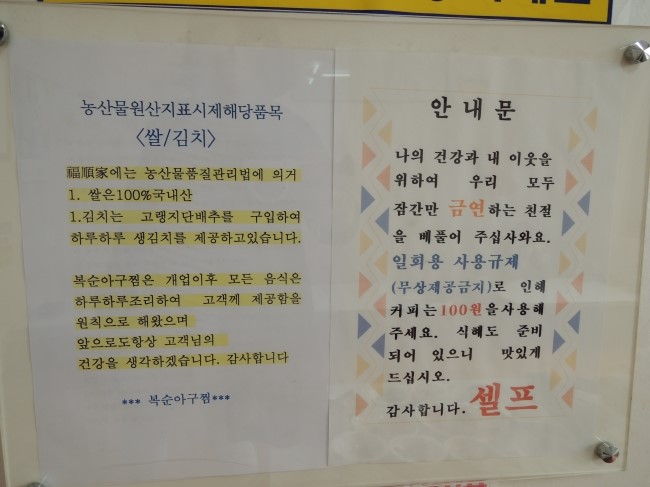 농산물원산지표시제해당품목
<쌀/김치>
福順家에는 농산물품질관리법에 의거
1. 쌀은100%국내산
1.김치는 고랭지단배추를 구입하여
하루하루 생김치를 제공하고있습니다.
복순아구찜은 개업이후 모든 음식은
하루하루조리하여 고객께 제공함을
원칙으로 해왔으며
앞으로도항상 고객님의
건강을 생각하겠습니다. 감사합니다
*** 복순아구찜***
안내문
나의 건강과 내 이웃을
위하여 우리 모두
잠간만 금연하는 친절
을 베풀어 주십사와요.
일회용 사용규제
(무상제공금지)로 인해
커피는100원을사용해
주세요. 식혜도 준비
되어 있으니 맛있게
드십시오.
감사합니다. 셀프